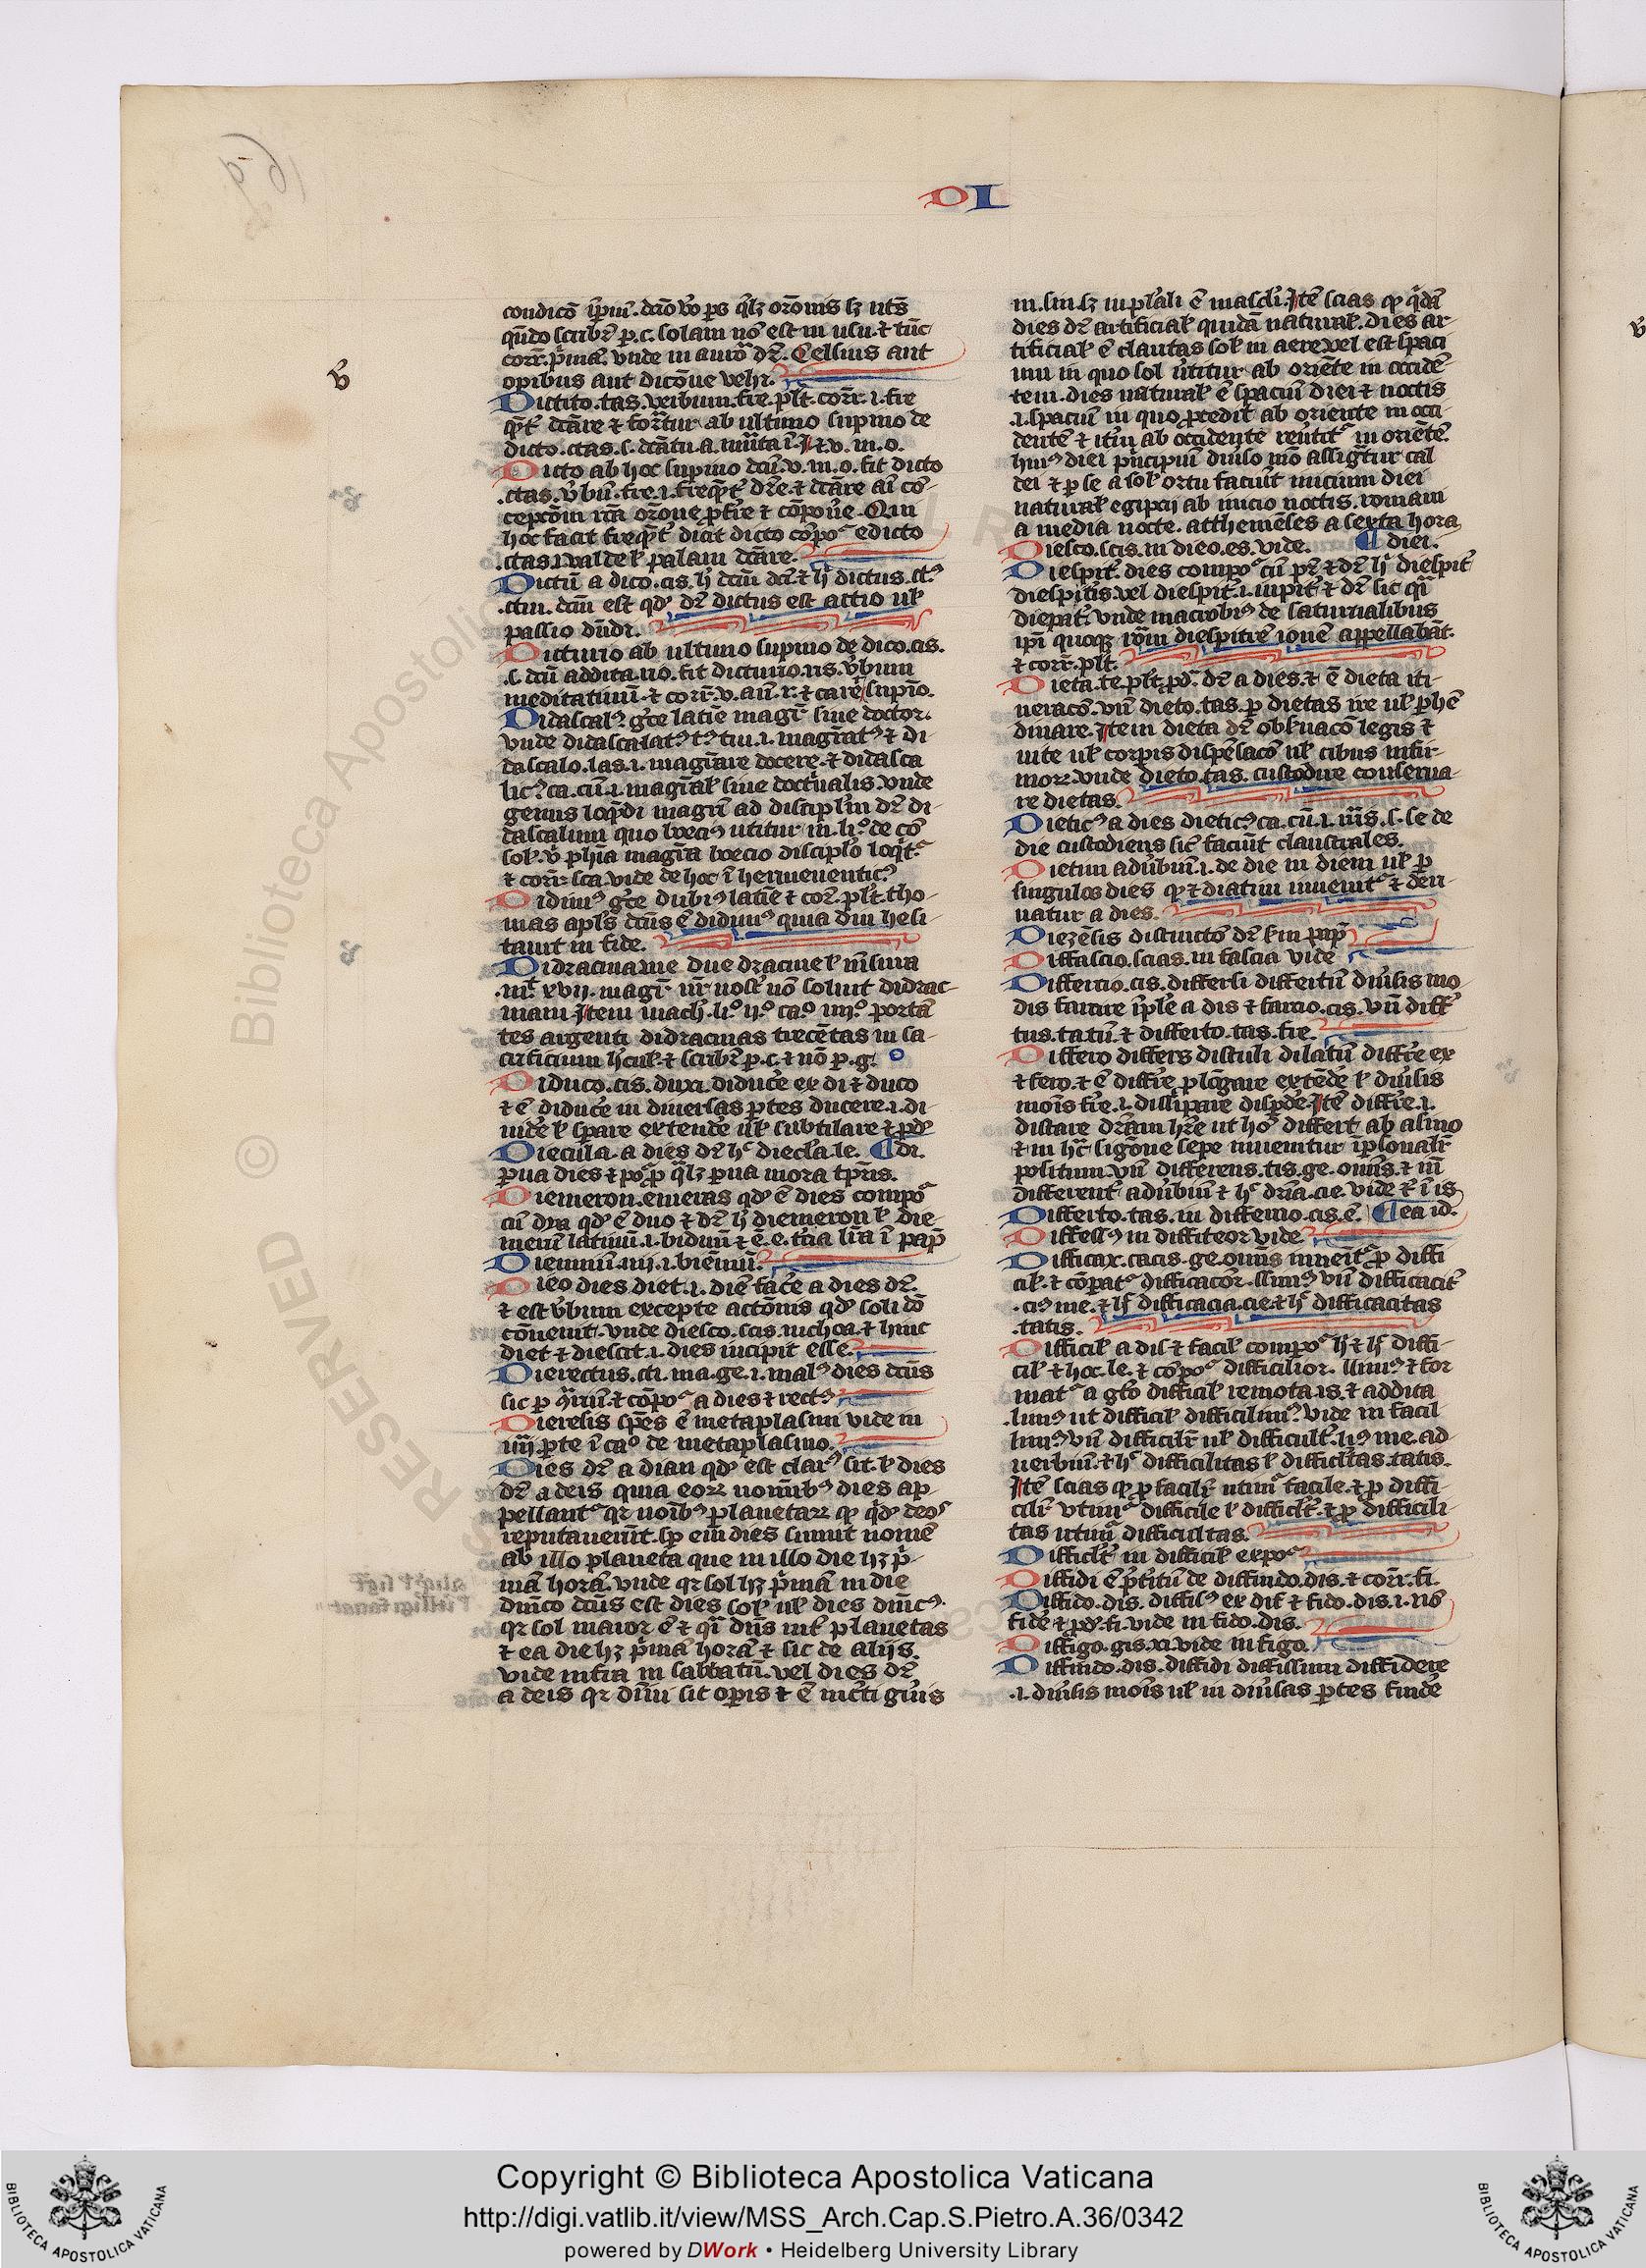 DI
condicō īpm̄. dcīo v̄o ps q̄lꝫ orōnis ſꝫ ut̄s
qn̄do ſcribr̄ p.c. ſolam nō est in uſu. ⁊ tūc
corr̄. p̄mā. vnde in auro dr̄. Celſius ant
v̄
opibus aut dicōne vehr̄.
Dictito.tas. verbum. fre. plt̄. corr̄. i. fre
q̄t̄ dcāre ⁊ formr̄tur ab ultimo ſupino de
dicto.ctas. ſ. dcātu .a. mūta ī .i. ⁊ v. in. o.
Dicto ab hoc ſupino dcū. v. in. o. fit dicto
.ctas. v̄bū. fre. i. freqn̄t̄ dr̄e. ⁊ dcāre aī cō-
hoc facit freqn̄t̄ dicit dicto cōpoꝰ edicto
.ctas. i. valde ł palam dcāre.
Dictū a dico.cis. h̄ dcū dcī ⁊ h̄ dictus.ctꝰ
.ctui. dcm̄ est qd̄ dr̄ dictus est actio uł
paſſio dn̄di.
Dicturio ab ultimo ſupino de dico.cis.
.ſ. dcū addita rio. fit dicturio.ris. v̄bum
meditatiuū. ⁊ corr̄. v. an̄. r. ⁊ carē ſupīo.
Didaſcalꝰ gr̄ce latīe magr̄ ſiue doctor.
vnde didaſcalatꝰ tꝰ tui. i. magr̄atꝰ ⁊ di
daſcalo.las. i. magr̄are docere. ⁊ didaſca
licꝰ ca. cū. i. magr̄ał ſiue doctrialis. vnde
genus loqn̄di magr̄i ad diſcipl̄m dr̄ di-
daſcalium quo boeciꝰ utitur in. li.º de cō
ſol. v̄ phīa magr̄a boecio diſcipl̄o loqtr̄
⁊ corr̄. ſca. vide de hoc ī hermeneuticꝰ
Didimꝰ gr̄ce dubiꝰ latīe ⁊ cor̄. plt̄. tho-
mas apl̄s dcūs ē didimꝰ quia diu heſi-
tauit in fide.
Didracma me due dracme ł mſura
.mt̄. xvij. magr̄ ur̄ nost̄ nō ſoluit didrac
mam. Item mach̄. li.º ij.º ca.º iiij.º porta
tes argenti didracmas trecētas in ſa-
crificium hcuł. ⁊ ſcribr̄ p. c. ⁊ nō p. g.
Diduco.cis. duxi. diducē ex di ⁊ duco
⁊ ē diducē in diuerſas ptes ducere. i. di-
uidē ł ſpare extendē uł ſubtilare ⁊ pd̄
Diecula. a dies dr̄ hͨ diecła.le. ¶ di.
pua dies ⁊ poͬ p q̄lꝫ pua mora tp̄ris.
Diemeron.emeras qd̄ ē dies compoͬ
cū dya qd̄ ē duo ⁊ dr̄ h̄ diemeron ł die-
Dieo dies diet. i. diē facē a dies dr̄.
⁊ est v̄bum excepte actōnis qd̄ ſoli dō
cōuenit. vnde dieſco.ſcis. inchoa. ⁊ hinc
diet ⁊ dieſcit. i. dies incipit eſſe.
Dierectus.cti. ma. ge. i. malꝰ dies dcūs
ſic p ꝯ̄riū. ⁊ cōpoͬ a dies ⁊ rectꝰ
Diereſis ſpēs ē metaplaſmi vide in
iiij. pte ī caº de metaplaſmo.
Dies dr̄ a dian qd̄ est clarꝰ ſit. ł dies
dr̄ a deis quia eorꝝ nomībꝰ dies ap-
pellantͬ qr̄ noībꝰ planetarꝝ qͣ qd̄ deos
reputauerūt. ſp̄ em dies ſumit nomē
ab illo planeta que in illo die hꝫ p̄-
mā horā. vnde qr̄ ſol hꝫ p̄mā in die
dnīco dcūs est dies ſoł uł dies dnīcꝰ.
qr̄ ſol maior ē ⁊ qͣi dn̄s int̄ planetas
⁊ ea die hꝫ p̄mā horā ⁊ ſic de alijs.
vide infra in ſabbatū. vel dies dr̄
a deis qr̄ dīni ſit opis ⁊ ē incti gn̄is
in. ſin. ſꝫ in plāli ē maſcł. Itē ſcias qͣ qd̄ā
dies dr̄ artificiał quidā naturał. dies ar-
tificiał ē claritas ſoł in aere vel est ſpaci
um in quo ſol ūtitur ab oriēte in occidē
tem. dies naturał ē ſpaciū diei ⁊ noctis
.i. ſpaciū in quo p̄cedit ab oriente in occi
dentē ⁊ itm̄ ab occidente reūtitͬ in oriētē
huiꝰ diei pncipiū diuſo mō aſſigntur cał
dei ⁊ p ſe a ſoł ortu faciūt inicium diei
naturał egipcij ab inicio noctis. romani
a media nocte. atthemēſes a ſexta hora
Dieſco.ſcis. in dieo.es. vide. ¶ diei.
Dieſpit̄. dies compoͬ cū pr̄ ⁊ dr̄ h̄ dieſpit̄
dieſpitis. vel dieſpit̄. i. iupit̄ ⁊ dr̄ ſic qͣi
diepat̄. vnde macrobiꝰ de ſaturnalibus
ipī quoqꝫ roīm dieſpitrē iouē appellabāt.
⁊ corr̄. plt̄.
Dieta.te. plt̄. pd̄. dr̄ a dies. ⁊ ē dieta iti-
neracō. vn̄ dieto.tas. p dietas ire uł phē
dinare. Item dieta dr̄ obſuacō legis ⁊
uite uł corpis diſpēſacō uł cibus infir-
morꝝ. vnde dieto.tas. cuſtodire conſerua-
re dietas.
Dieticꝰ a dies dieticꝰ ca. cū. i. iūs. ſ. ſe de
die cuſtodiens ſicͭ faciūt clauſtrales.
Dietim adūbiū. i. de die in diem uł p
ſingulos dies qͣ ⁊ diatim inuenitͬ ⁊ deri-
uatur a dies.
Diezēſis diſtinctō dr̄ ł in pap̄
Diffaſcio.ſcias. in faſcia vide
Differcio.cis. differſi differtū diūſis mo
dis farcire īplē a dis ⁊ farcio.cis. vn̄ diff̄
tus.ta.tū. ⁊ differto.tas. fre.
Differo differs diſtuli dilatū diffre ex
⁊ fero. ⁊ ē diffre plōgare extēde ł diūſis
mōis fre. i. diſſipare diſpdē. Itē diffre. i.
diſtare dr̄am hr̄e ut hō differt ab aſino
politum. vn̄ differens.tis. ge. omīs. ⁊ in̄
different̄ adūbiū ⁊ hͨ dr̄ia.cie. vide ⁊ ī is
Differto.tas. in differcio.cis. ē. ¶ ea id.
Diffeſſꝰ in diffiteor vide.
Difficax.cacis. ge. omīs inueitͬ p diffi
cił. ⁊ cōpatͬ difficacior. ſſimꝰ vn̄ difficacit̄
.ciꝰ me. ⁊ hͨ difficacia.cie. ⁊ hͨ difficacitas
.tatis.
Difficił a diſ ⁊ facił compoͬ h̄ ⁊ hͨ diffi-
cił ⁊ hoc. le. ⁊ cōpoͬ difficilior. llimꝰ ⁊ for
matͬ a gto difficił remota .is. ⁊ addita
.limꝰ ut difficił difficilimꝰ. vide in facil
limꝰ. vn̄ difficilr̄ uł difficult̄. liꝰ me. ad-
uerbiū. ⁊ hͨ difficilitas ł difficltas.tatis.
Itē ſcias qͣ p facilr̄ utimͬ facile. ⁊ p diffi
cilr̄ utimͬ difficile ł difficlt̄. ⁊ p difficili-
tas utimͬ difficultas.
Difficlt̄ in difficił expoͬ
Diffidi ē pt̄itū de diffindo.dis. ⁊ corr̄. fi.
Diffido.dis. diffiſꝰ ex diſ ⁊ fido.dis. i. nō
fidē ⁊ pd̄. fi. vide in fido.dis.
Diffigo.gis. xi. vide in figo.
Diffindo.dis. diffidi diffiſſum diffidere
.i. diūſis mōis uł in diūſas ptes findē
Copyright © Biblioteca Apostolica Vaticana
http://digi.vatlib.it/view/MSS_Arch.Cap.S.Pietro.A.36/0342
powered by DWork • Heidelberg University Library
BIBLIOTECA APOSTOLICA VATICANA
BIBLIOTECA APOSTOLICA VATICANA